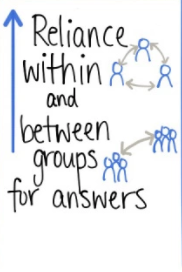 Reliance
within
and
between
groups
for answers